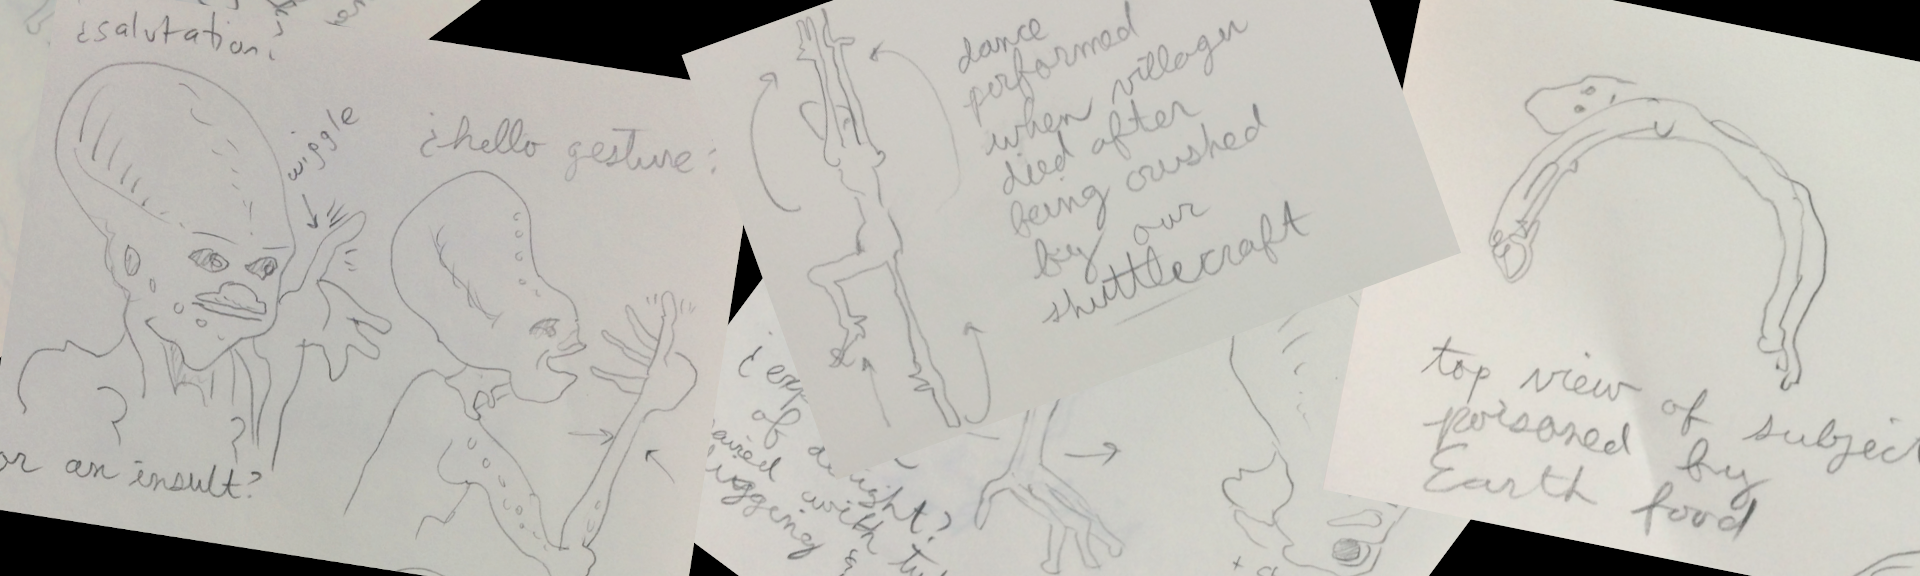 ¿salutation?
wiggle
¿hello gesture?
or an insult?
dance
performed
when villager
died after
being crushed
by our
shuttlecraft
of
with
top view of subject
poisoned by
Earth food